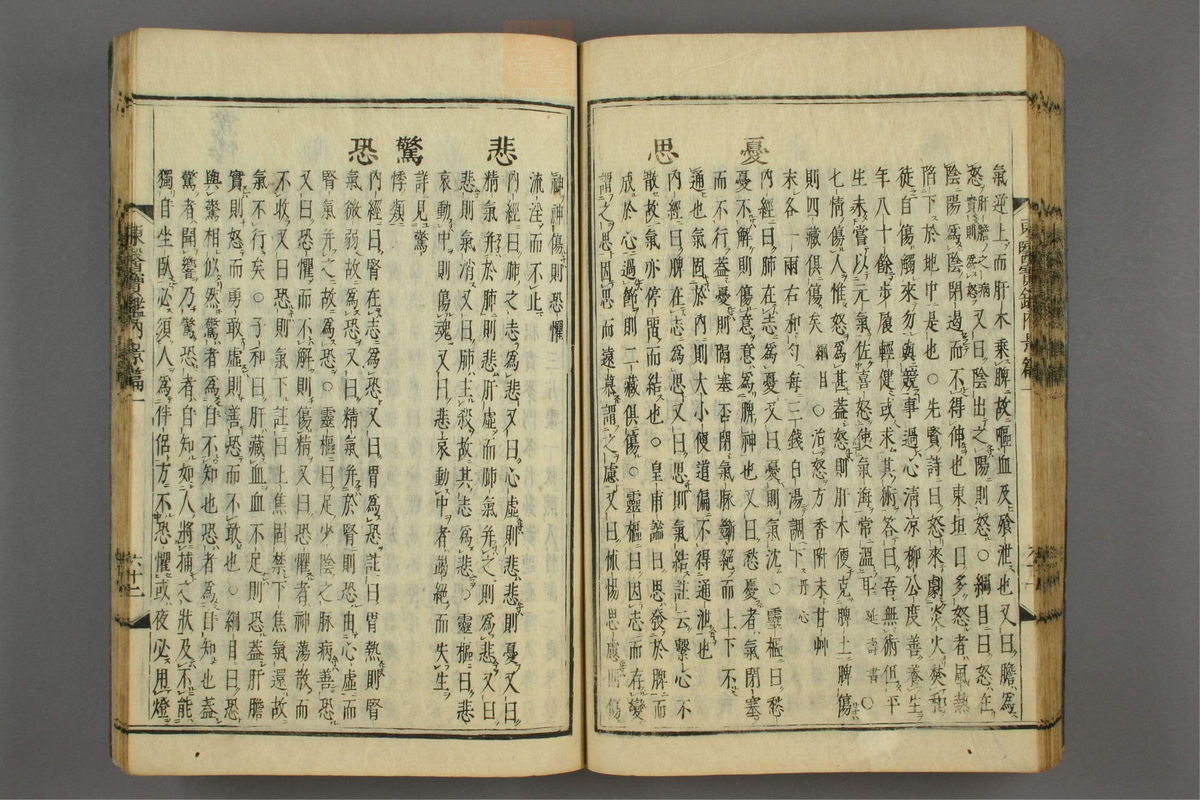 氣逆上而肝木乘脾故嘔血及飱泄也又曰膽爲
怒肝膽之病實則爲怒又曰陰出之陽則怒○綱目曰怒在
陰陽爲陰閉遏而不得伸也東垣曰多怒者風熱
陷下於地中是也○先賢詩曰怒來劇炎火焚和
徒自傷觸來勿與競事過心淸凉柳公度善養生
年八十餘步履輕健或求其術答曰吾無術但平
生未嘗以元氣佐喜怒使氣海常溫耳延壽書○
七情傷人惟怒爲甚蓋怒則肝木便克脾土脾傷
則四藏俱傷矣綱目○治怒方香附末甘艸
末各一兩右和勻每三錢白湯調下丹心
憂
內經曰肺在志爲憂又曰憂則氣沈○靈樞曰愁
憂不解則傷意意爲脾神也又曰愁憂者氣閉塞
而不行蓋憂則隔塞否閉氣脉斷絕而上下不
通也氣固於內則大小便道偏不得通泄也
思
內經曰脾在志爲思又曰思則氣結註云繫心不
散故氣亦停留而結也○皇甫謐曰思發於脾而
成於心過節則二藏俱傷○靈樞曰因志而存變
謂之思因思而遠慕謂之慮又曰怵惕思慮則傷
神神傷則恐懼
流淫而不止
悲
內經曰肺之志爲悲又曰心虛則悲悲則憂又曰
精氣并於肺則悲肝虛而肺氣并之則爲悲又曰
悲則氣消又曰肺主殺故其志爲悲○靈樞曰悲
哀動中則傷魂又曰悲哀動中者竭絕而失生
驚
詳見驚
悸類
恐
內經曰腎在志爲恐又曰胃爲恐註曰胃熱則腎
氣微弱故爲恐又曰精氣并於腎則恐由心虛而
腎氣并之故爲恐○靈樞曰足少陰之脉病善恐
又曰恐懼而不解則傷精又曰恐懼者神蕩散而
不收又曰恐則氣下註曰上焦固禁下焦氣還故
氣不行矣○子和曰肝藏血血不足則恐蓋肝膽
實則怒而勇敢虛則善恐而不敢也○綱目曰恐
與驚相似然驚者爲自不知也恐者爲自知也蓋
驚者聞響乃驚恐者自知如人將捕之狀及不能
獨自坐臥必須人爲伴侶方不恐懼或夜必用燈
東醫寶鑑內景篇一